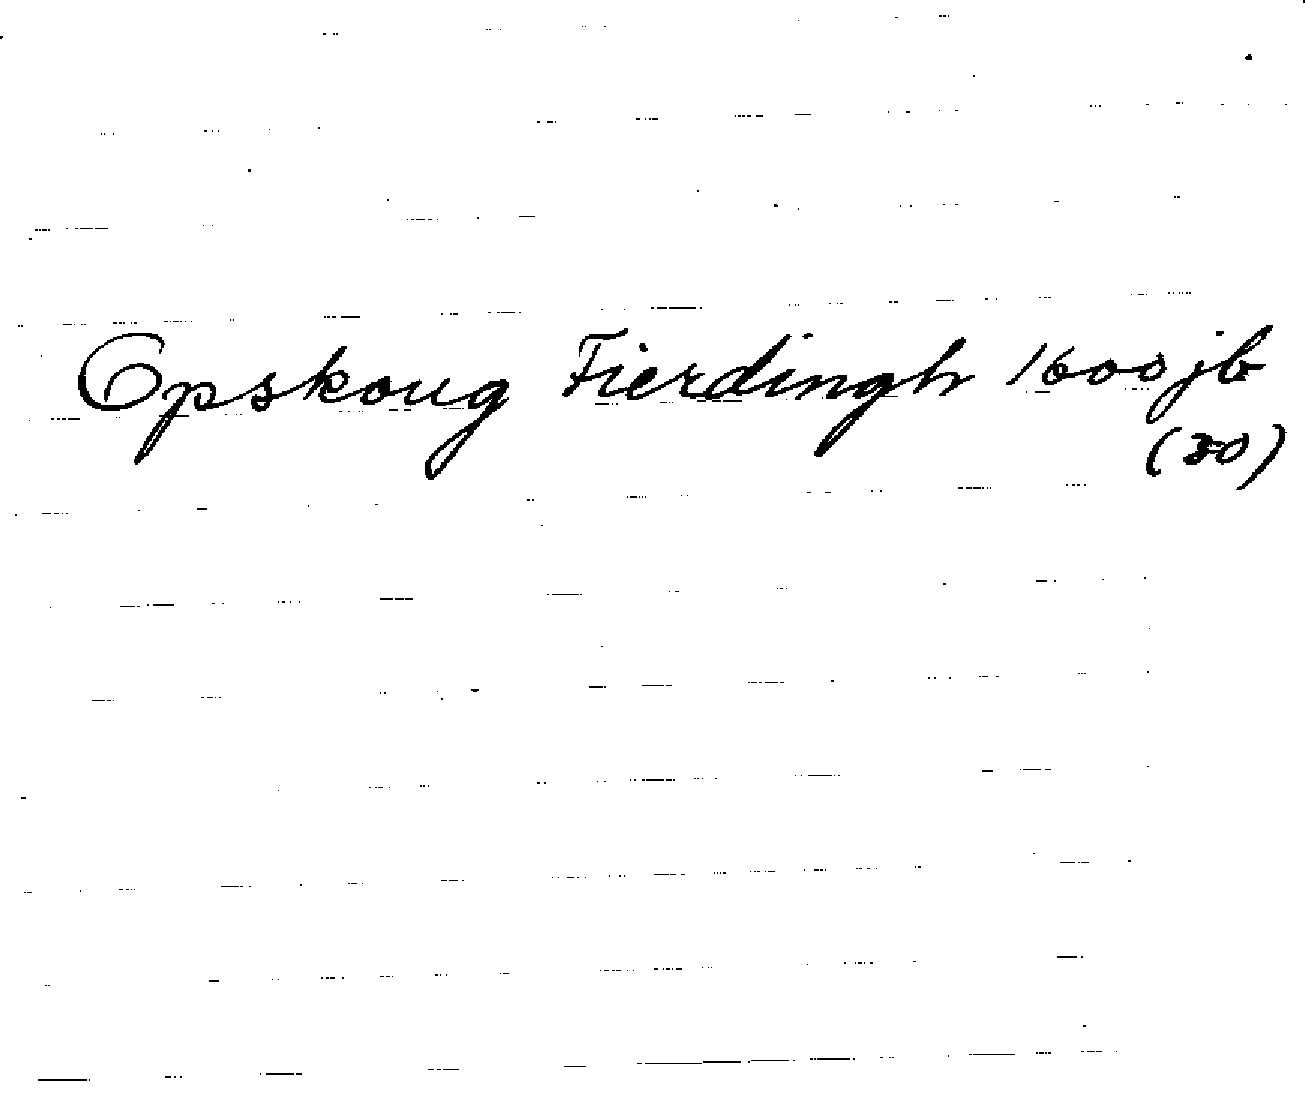 Opskoug Fierdingh 1600 jb
(30)